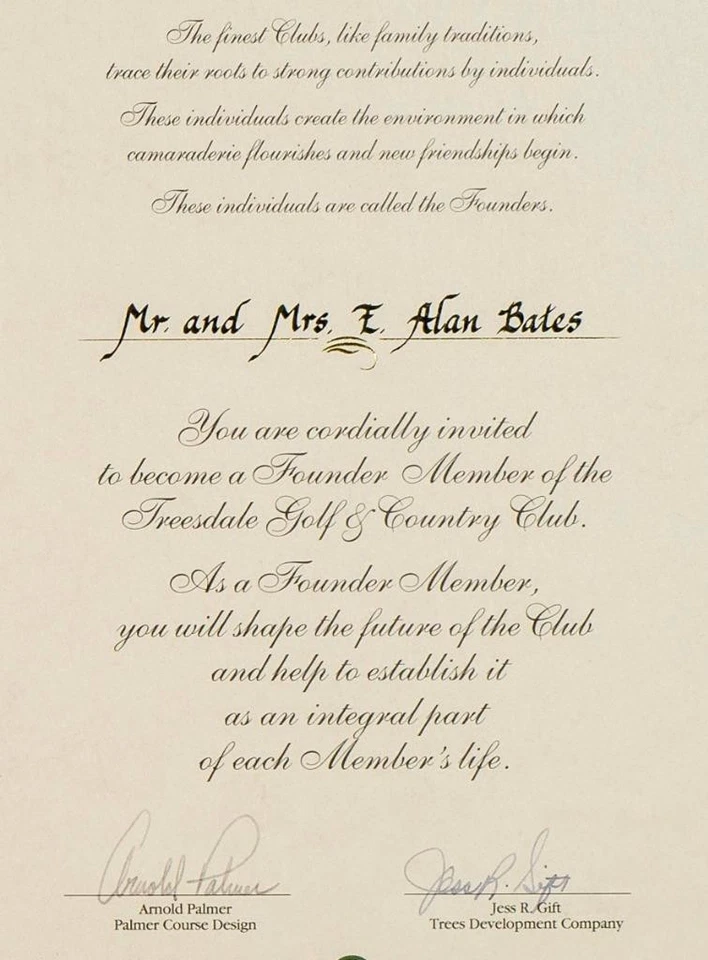 The finest Clubs, like family traditions,
trace their roots to strong contributions by individuals.
These individuals create the environment in which
camaraderie flourishes and new friendships begin.
These individuals are called the Founders.
Mr. and Mrs. E. Alan Bates
You are cordially invited
to become a Founder Member of the
Treesdale Golf & Country Club.
As a Founder Member,
you will shape the future of the Club
and help to establish it
as an integral part
of each Member's life.
Arnold Palmer
Jess R. Gift
Arnold Palmer
Palmer Course Design
Jess R. Gift
Trees Development Company